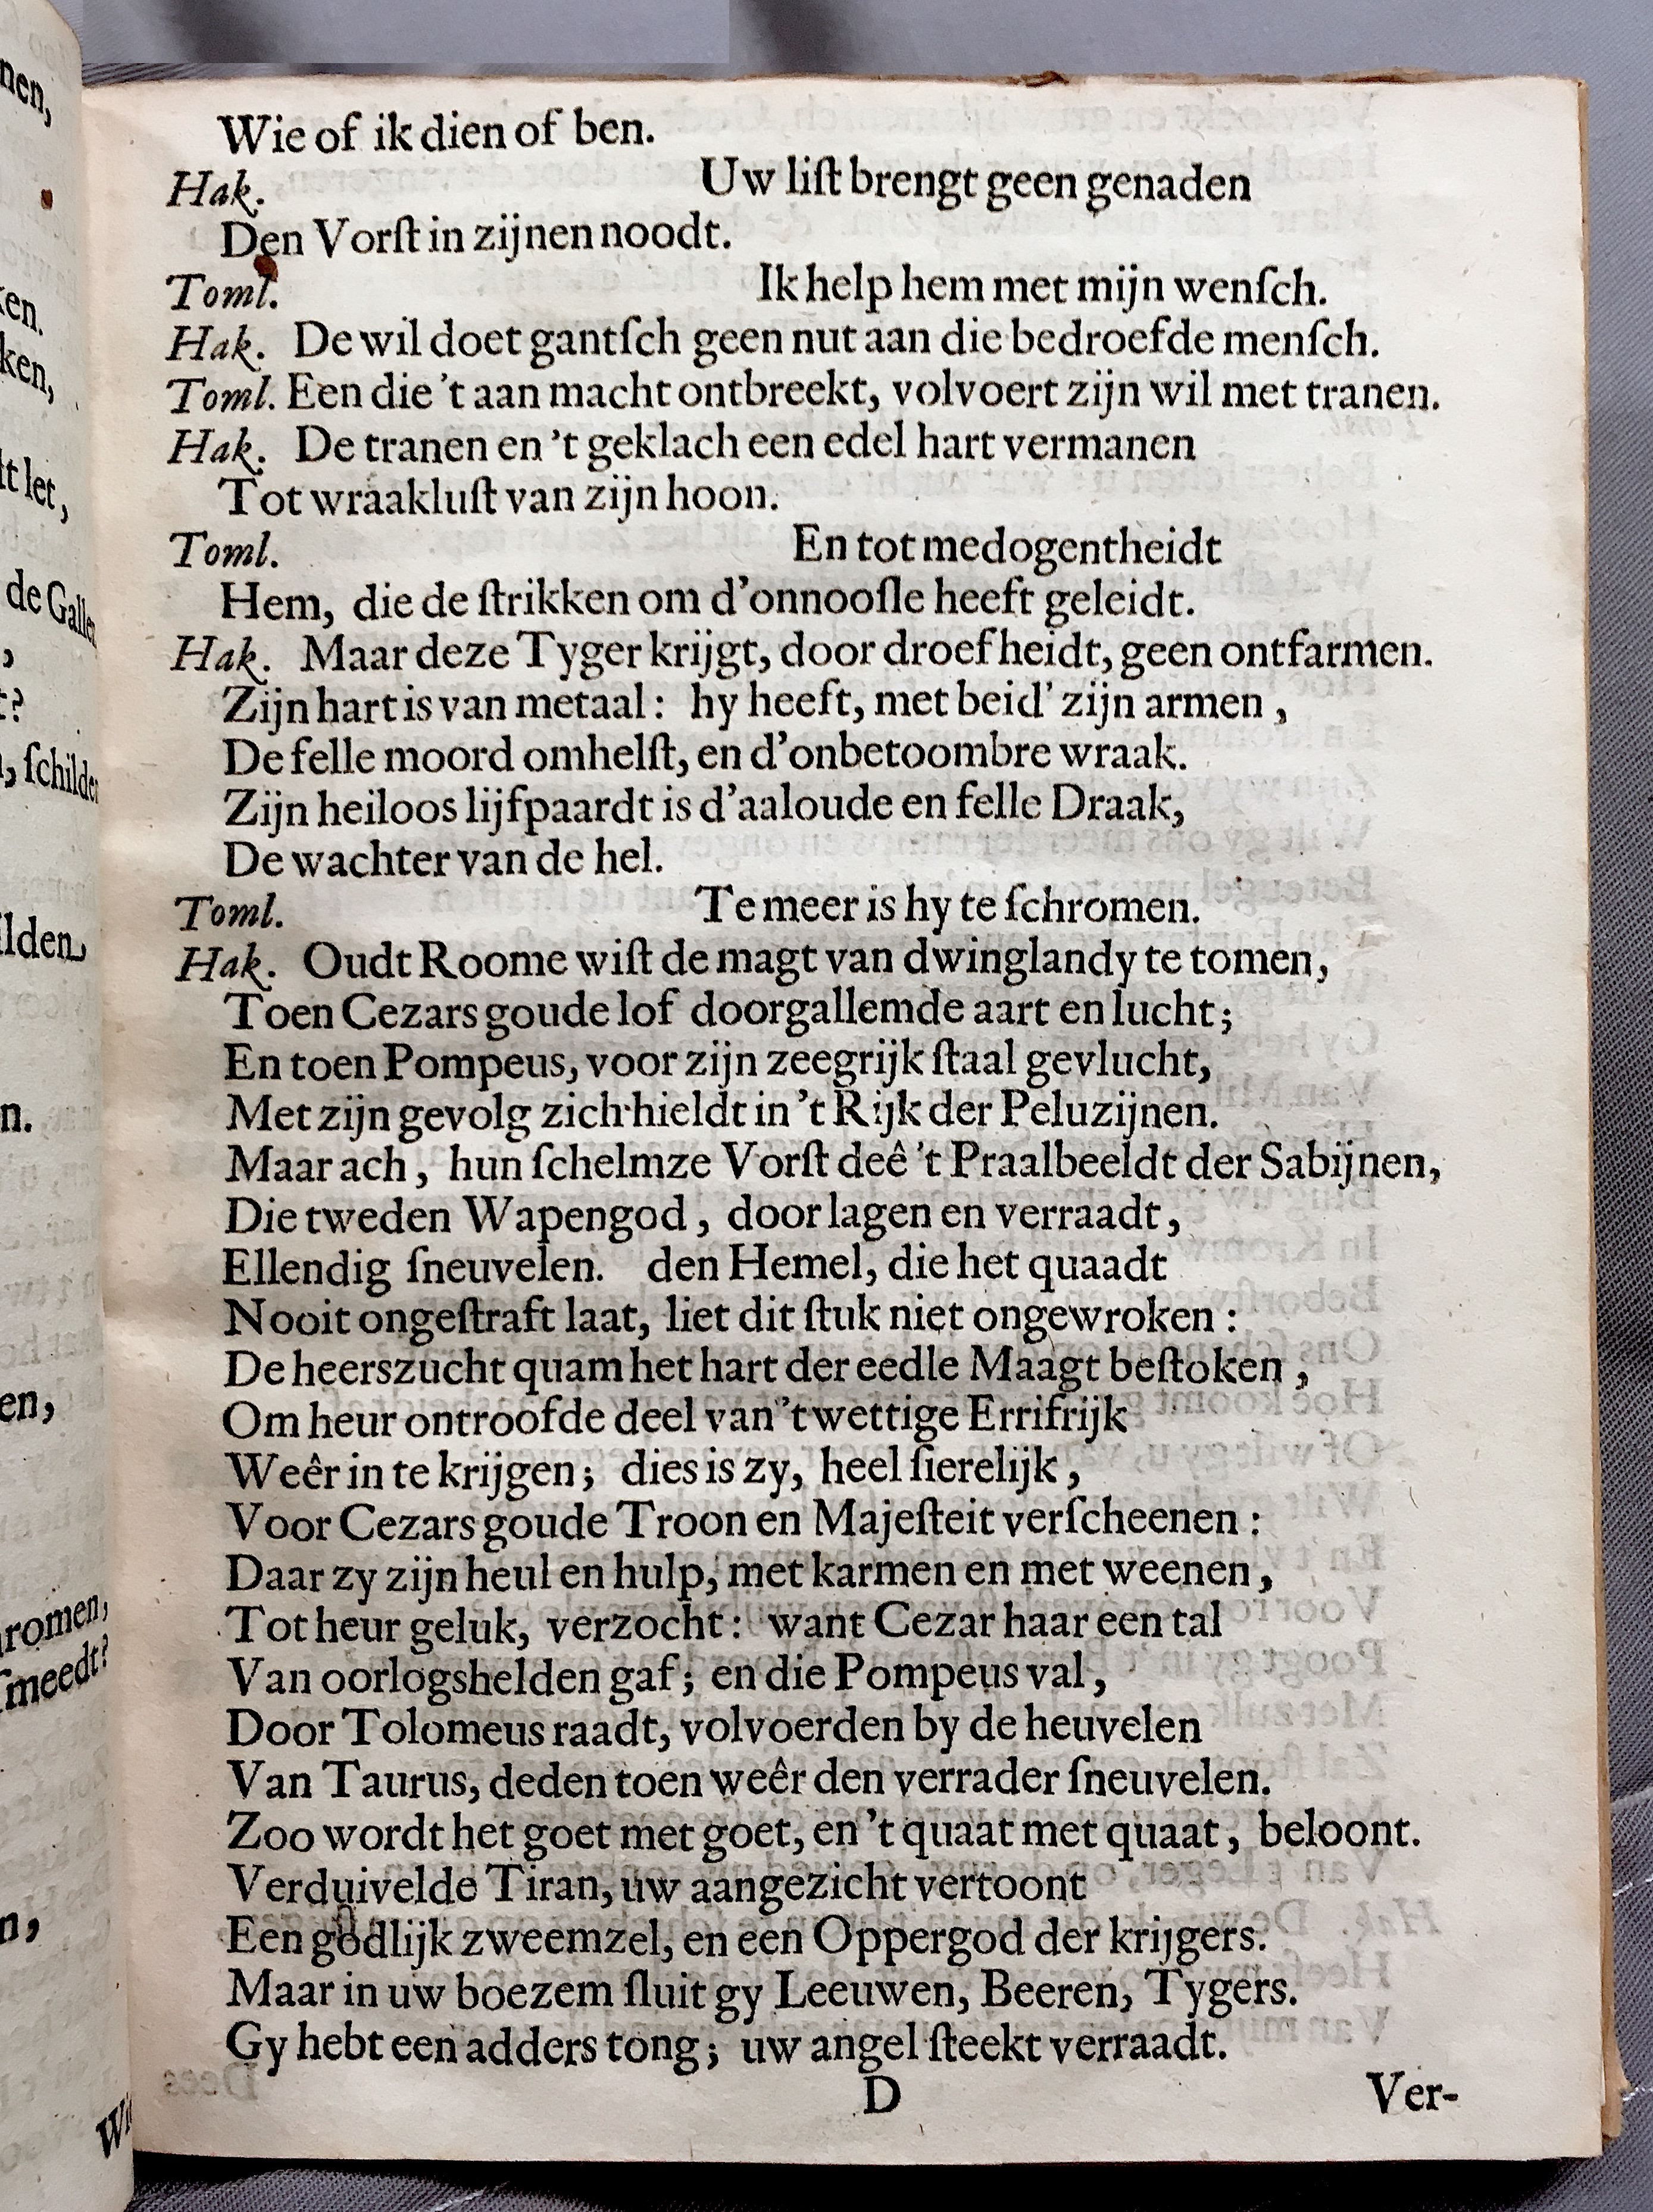 Wie of ik dien of ben.
Hak. Uw liſt brengt geen genaden
Den Vorſt in zijnen noodt.
Toml. Ik help hem met mijn wenſch.
Hak. De wil doet gantſch geen nut aan die bedroefde menſch.
Toml. Een die 't aan macht ontbreekt, volvoert zijn wil met tranen.
Hak. De tranen en 't geklach een edel hart vermanen
Tot wraakluſt van zijn hoon.
Toml. En tot medogentheidt
Hem, die de ſtrikken om d'onnooſle heeft geleidt.
Hak. Maar deze Tyger krijgt, door droefheidt, geen ontfarmen.
Zijn hart is van metaal: hy heeft, met beid' zijn armen,
De felle moord omhelſt, en d'onbetoombre wraak.
Zijn heiloos lijfpaardt is d'aaloude en felle Draak,
De wachter van de hel.
Toml. Te meer is hy te ſchromen.
Hak. Oudt Roome wiſt de magt van dwinglandy te tomen,
Toen Cezars goude lof doorgallemde aart en lucht;
En toen Pompeus, voor zijn zeegrijk ſtaal gevlucht,
Met zijn gevolg zich hieldt in 't Rijk der Peluzijnen.
Maar ach, hun ſchelmze Vorſt deê 't Praalbeeldt der Sabijnen,
Die tweden Wapengod, door lagen en verraadt,
Ellendig ſneuvelen. den Hemel, die het quaadt
Nooit ongeſtraft laat, liet dit ſtuk niet ongewroken:
De heerszucht quam het hart der eedle Maagt beſtoken,
Om heur ontroofde deel van 't wettige Errifrijk
Weêr in te krijgen; dies is zy, heel ſierelijk,
Voor Cezars goude Troon en Majeſteit verſcheenen:
Daar zy zijn heul en hulp, met karmen en met weenen,
Tot heur geluk, verzocht: want Cezar haar een tal
Van oorlogshelden gaf; en die Pompeus val,
Door Tolomeus raadt, volvoerden by de heuvelen
Van Taurus, deden toen weêr den verrader ſneuvelen.
Zoo wordt het goet met goet, en 't quaat met quaat, beloont.
Verduivelde Tiran, uw aangezicht vertoont
Een godlijk zweemzel, en een Oppergod der krijgers.
Maar in uw boezem ſluit gy Leeuwen, Beeren, Tygers.
Gy hebt een adders tong; uw angel ſteekt verraadt.
D Ver-